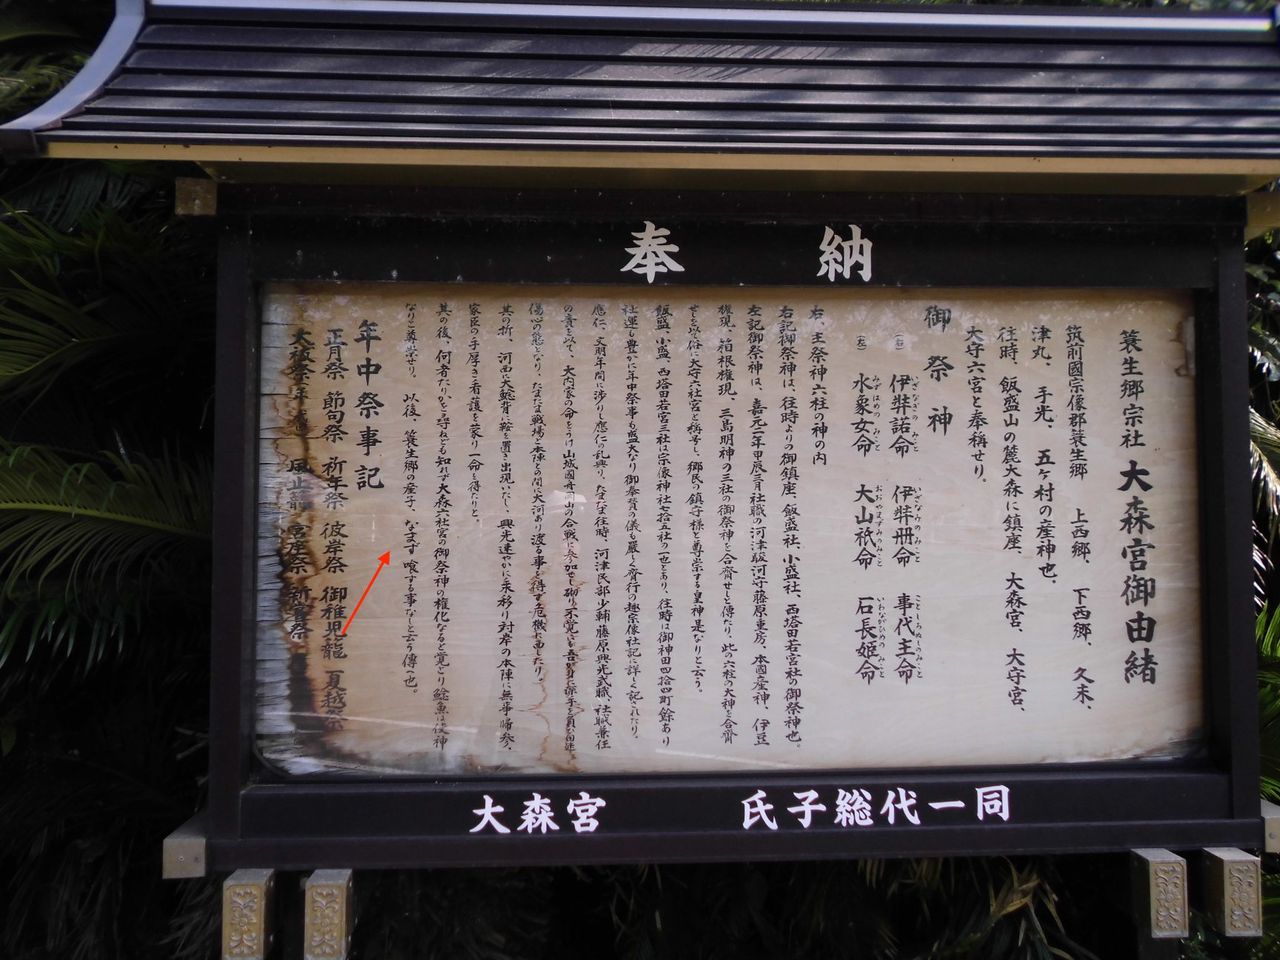 奉納
蓑生郷宗社 大森宮御由緒
筑前國宗像郡蓑生郷 上西郷、下西郷、久末、
津丸、手光、五ヶ村の産神也、
往時、飯盛山の麓大森に鎮座、大森宮、大守宮、
大守六宮と奉稱せり。
御祭神
(右) 伊弉諾命 いざなぎのみこと 伊弉冊命 いざなみのみこと 事代主命 ことしろぬしのみこと
(左) 水象女命 みずはめのみこと 大山祇命 おおやまずみのみこと 石長姫命 いわながひめのみこと
右、主祭神六柱の神の内
右記御祭神は、往時よりの御鎮座、飯盛社、小盛社、西塔田若宮社の御祭神也。
左記御祭神は、嘉元二年甲辰三月社職の河津駿河守藤原重房、本國産神、伊豆
権現、箱根権現、三島明神の三社の御祭神を合齊せしと傳たり、此の六柱の大神を合齊
せしを以て俗に大守六社宮と称号し、郷民の鎮守様と尊崇する皇神是なりと云う。
飯盛、小盛、西塔田若宮三社は宗像神社七拾五社の一也とあり、往時は御神田四拾四町餘あり
社運も豊かに年中祭事も盛大なり御奉賛の儀も嚴しく齊行の趣宗像社記に詳しく記されたり。
應仁、文明年間に渉りし應仁の乱興り、たまたま往時、河津民部少輔藤原興光武職、社職兼任
の責を以て、大内家の命をうけ山城國舟岡山の合戦に参加せし砌り不覚にも吾が身に深手を負ひ出迷
傷心の態となり、たまたま戦場と本陣との間に大河あり渡る事を得ずる危機に面したり。
其の折、河面に大鯰背に鞍を置き出現いたし、興光速やかに乗移り対岸の本陣に無事帰参、
家臣の手厚き看護を蒙り一命を得たりと。
其の後、何者たりかと尋ねども知れず大森六社宮の御祭神の権化なると覚とり鯰魚は役神
なりと尊崇せり。以後、蓑生郷の産子、なまず喰する事なしと云う傳一也。
年中祭事記
正月祭 節句祭 祈年祭 彼岸祭 御稚児籠 夏越祭
風止籠 宮座祭 新嘗祭
大森宮 氏子総代一同